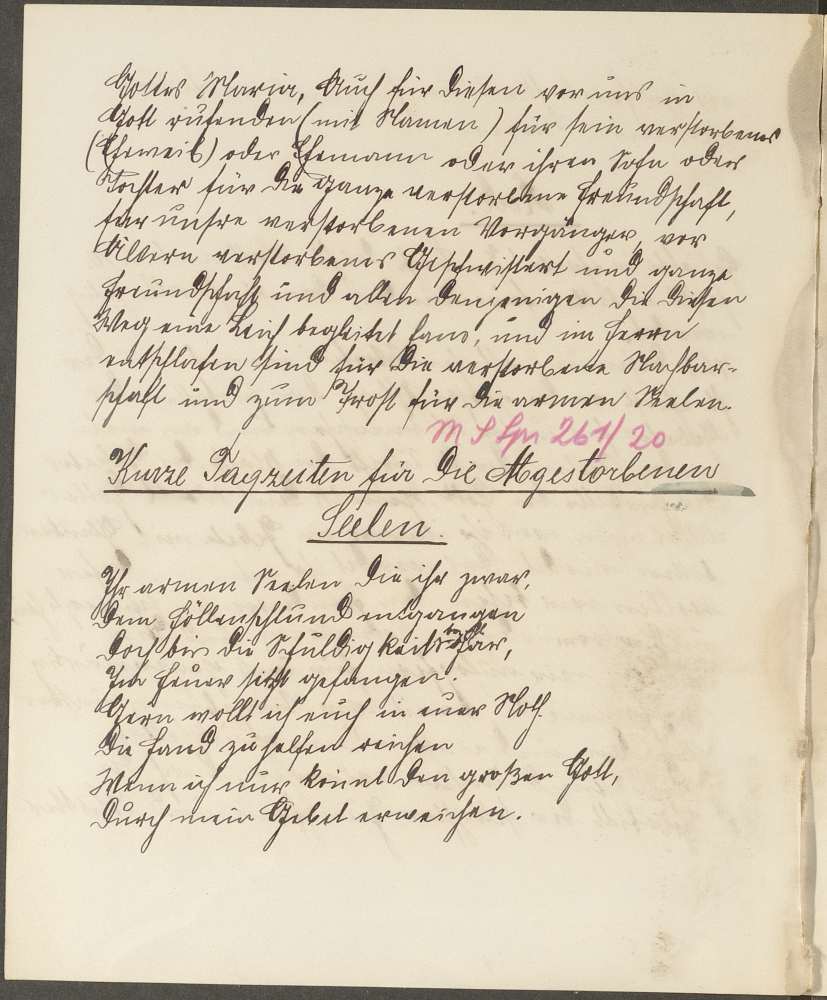 Gottes Maria, Auch für diesen vor uns in
Gott rufenden (mit Namen) für sein verstorbenes
(Eheweib) oder Ehemann oder ihren Sohn oder
Tochter für die ganze verstorbene Freundschaft,
für unsre verstorbenen Vorgänger, vor
Ältern verstorbenes Geschwistert und ganze
Freundschaft und allen denjenigen die diesen
Weg eine Leich begleitet hams, und im Herrn
entschlafen sind für die verstorbene Nachbar-
schaft und zum Trost für die armen Seelen.
M S Spr 261/20
Kurze Tagzeiten für die Abgestorbenen
Seelen.
Ihr armen Seelen die ihr zwar,
Dem Höllenschlund entgangen
Doch bis die Schuldigkeit bezahlt
Im Feuer sitzt gefangen.
Gern wollt ich euch in euer Noth
Die Hand zu helfen reichen
Wenn ich nur könnt den großen Gott,
Durch mein Gebet erweichen.